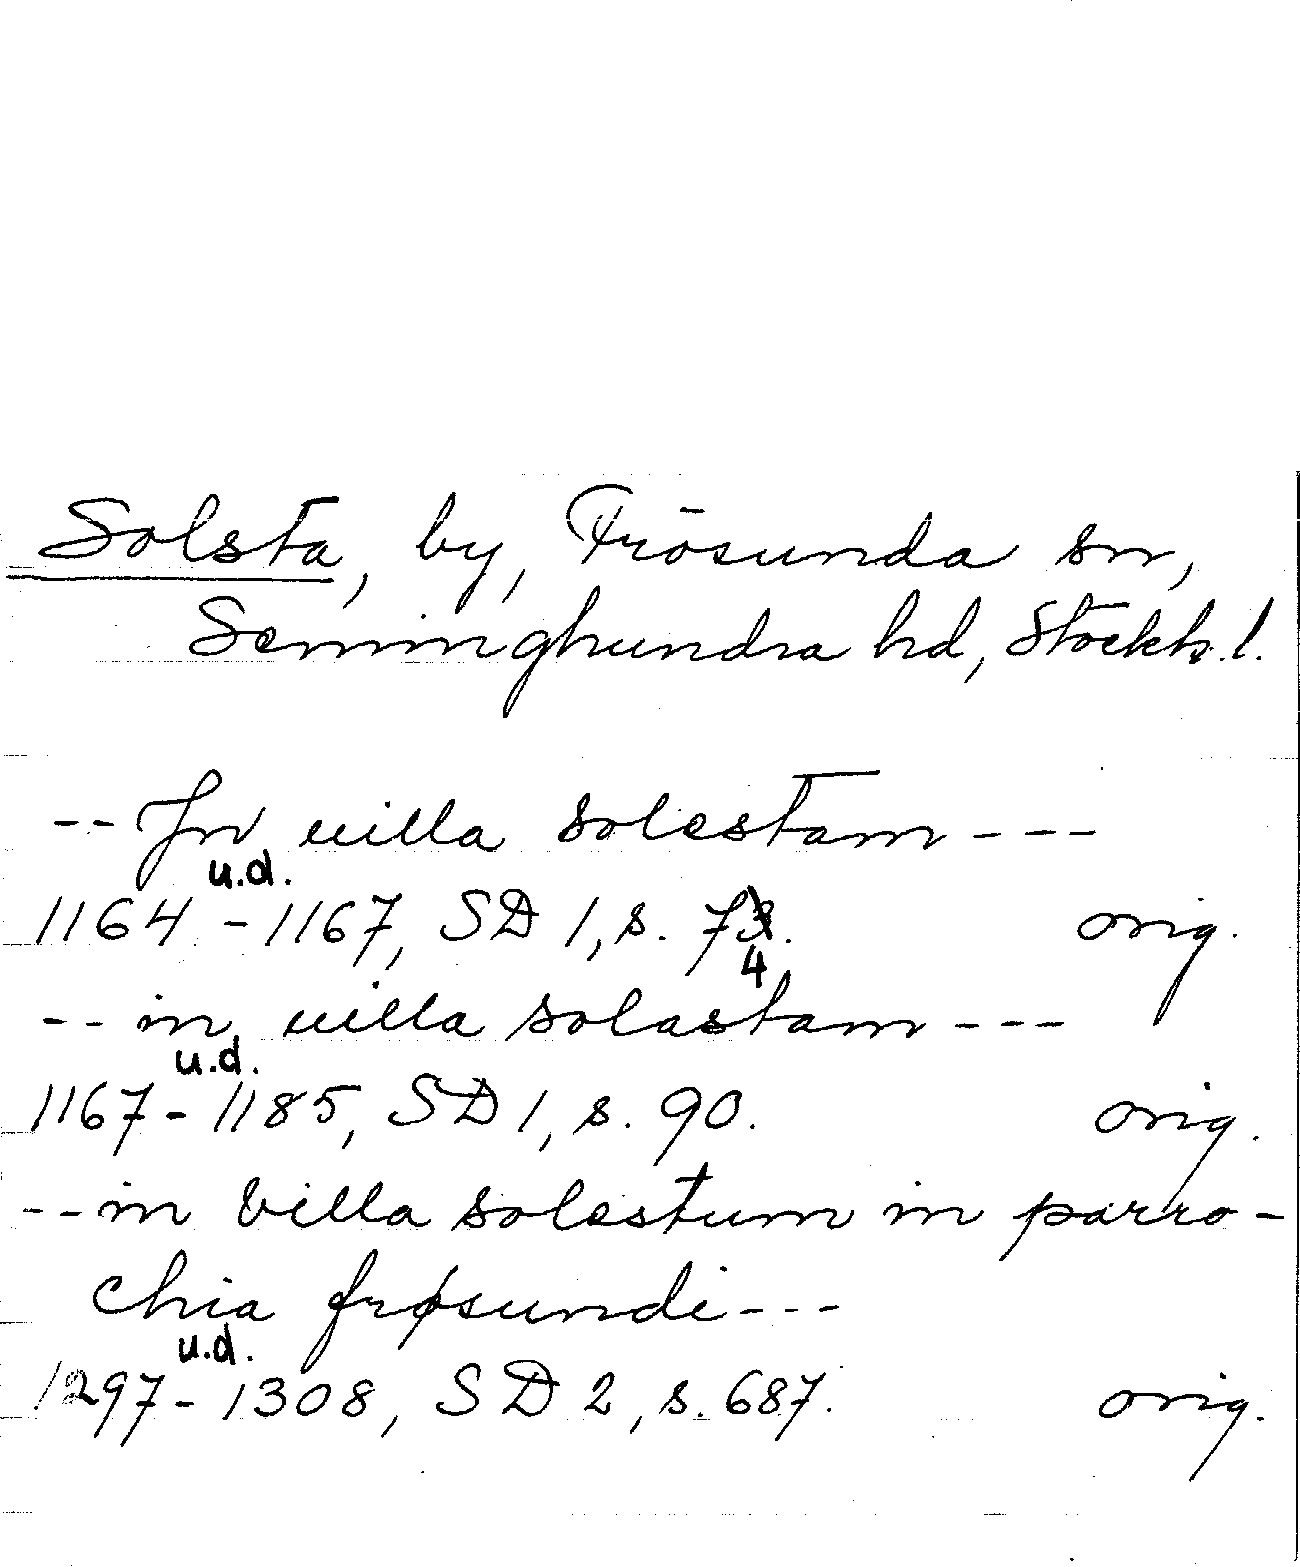 Solsta, by, Frösunda sn,
Seminghundra hd, Stockh. l.
-- Jn villa solestam ---
u.d.
1164 - 1167, SD 1, s. 73.
orig.
4
-- in villa solastam ---
u.d.
1167 - 1185, SD 1, s. 90.
orig.
-- in villa solestum in parro-
chia frøsundi ---
u.d.
1297 - 1308, SD 2, s. 687.
orig.